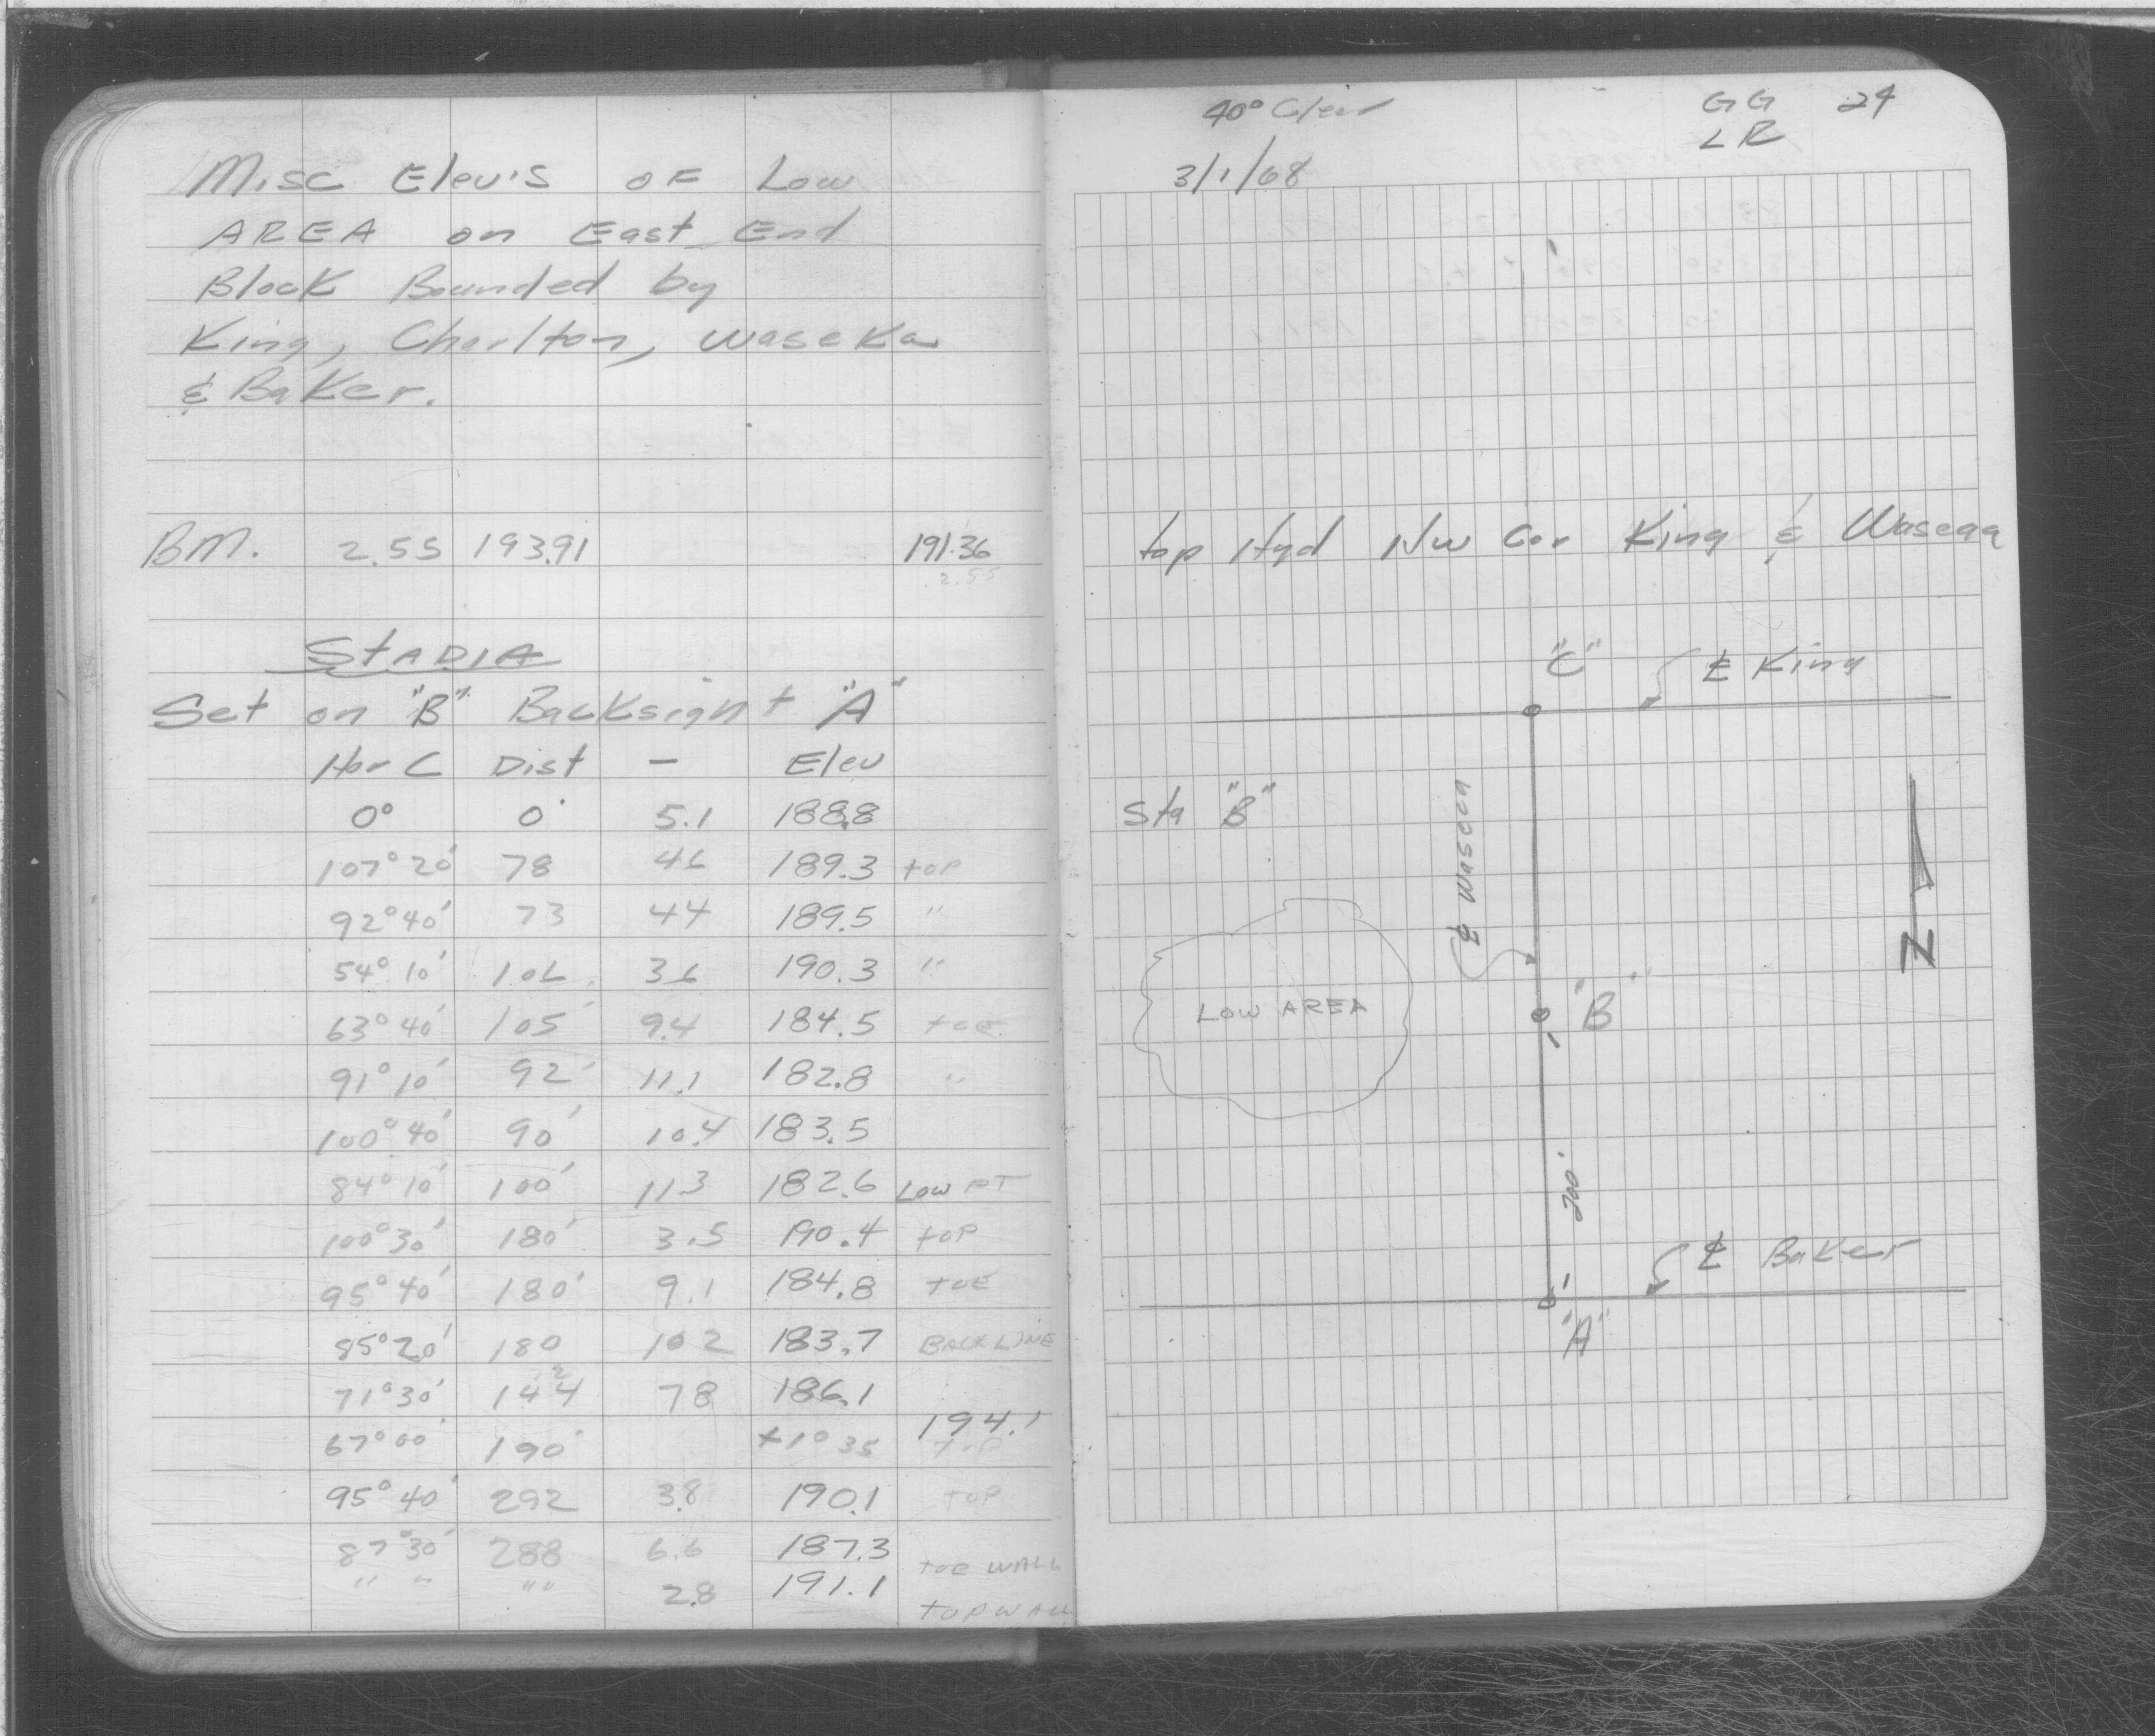 Misc Elev's OF Low
AREA on East End
Block Bounded by
King, Charlton, Waseka
& Baker.
BM. 2.55 193.91 191.36
2.55
STADIA
Set on "B" Backsight "A"
Hor C Dist — Elev
0° 0' 5.1 188.8
107°20' 78 4.6 189.3 top
92°40' 73 44 189.5 "
54°10' 106 3.6 190.3 "
63°40' 105' 9.4 184.5 toe
91°10' 92' 11.1 182.8 "
100°40' 90' 10.4 183.5
84°10' 100' 11.3 182.6 Low PT
100°30' 180' 3.5 190.4 top
95°40' 180' 9.1 184.8 toe
85°20' 180 10.2 183.7 BACK LINE
71°30' 144 78 186.1
67°00' 190' +1°35 194.1 top
95°40' 292 3.8 190.1 top
87°30' 288 6.6 187.3 toe WALL
" " " " 2.8 191.1 top WALL
40° Clear GG 24
LR
3/1/68
top Hyd NW Cor King & Waseca
"C" ℄ King
Sta "B"
℄ Waseca
LOW AREA
"B"
N
200'
℄ Baker
"A"